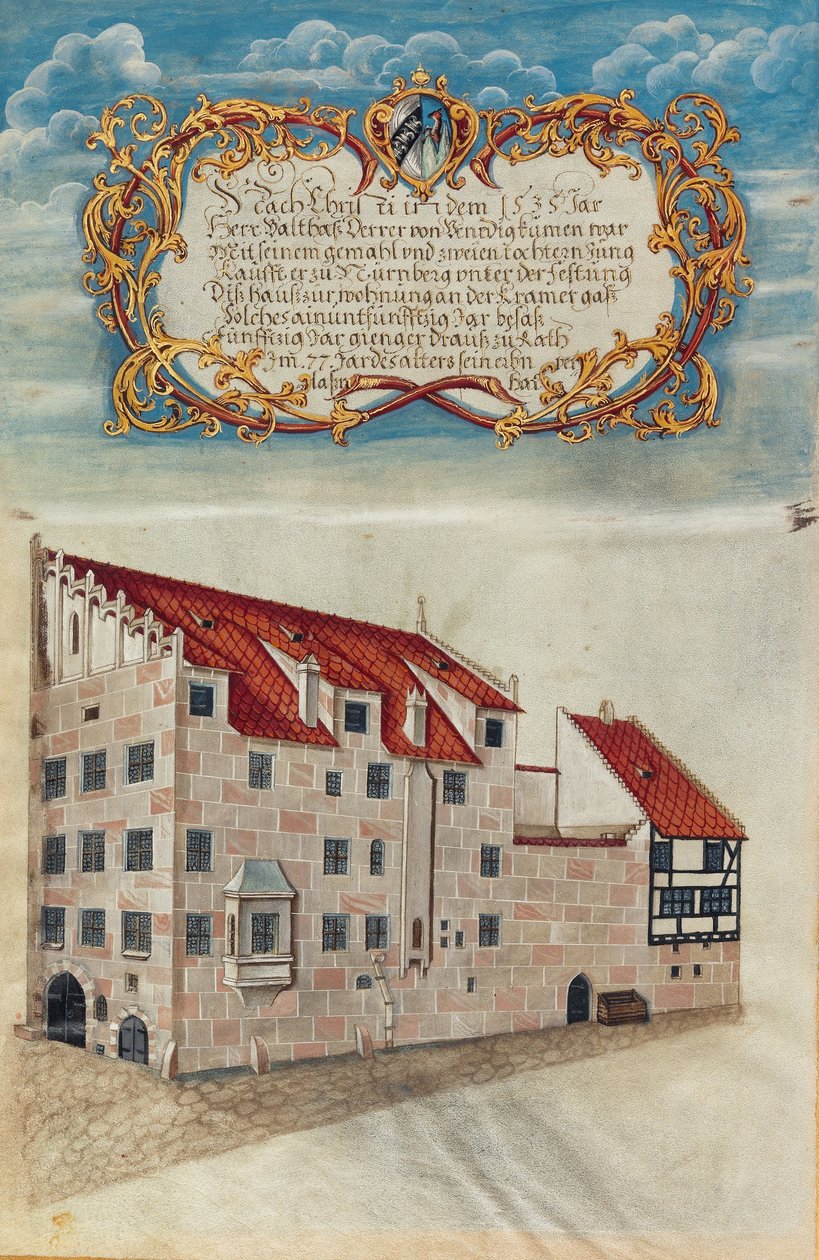 Nach Christi in dem 1535 Jar
Herr Balthaß Derrer von Venedig kumen war
Mit seinem gemahl vnd zweien tochtern Jung
Raufft er zu Nürnberg vnter der festung
Diß hauß zur wohnung an der Kramer gaß
Solches ain unt fünfftzig Jar besaß
Fünfftzig Jar gieng er drauß zu Rath
Im 77 Jar des alters sein
hat